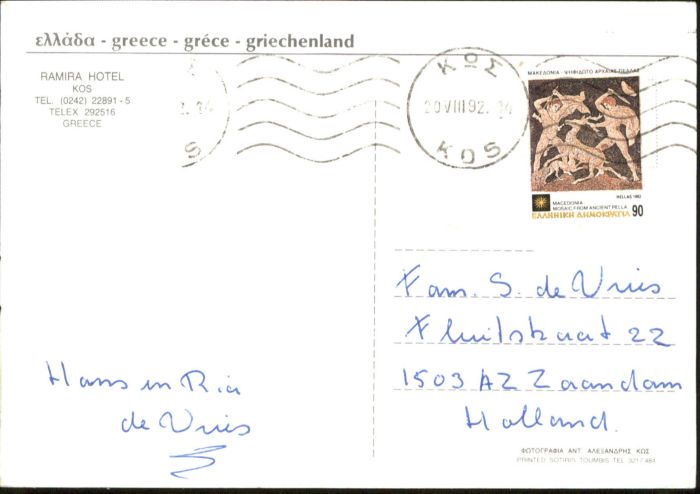 ελλάδα - greece - gréce - griechenland
RAMIRA HOTEL
KOS
TEL. (0242) 22891-5
TELEX 292516
GREECE
ΚΩΣ
20 VIII 92. 14
KOS
ΜΑΚΕΔΟΝΙΑ - ΨΗΦΙΔΩΤΟ ΑΡΧΑΙΑΣ ΠΕΛΛΑΣ
HELLAS 1992
MACEDONIA
MOSAIC FROM ANCIENT PELLA
ΕΛΛΗΝΙΚΗ ΔΗΜΟΚΡΑΤΙΑ 90
Fam. S. de Vries
Fluitstraat 22
1503 AZ Zaandam
Holland.
Hans en Ria
de Vries
ΦΩΤΟΓΡΑΦΙΑ ΑΝΤ. ΑΛΕΞΑΝΔΡΗΣ ΚΩΣ
PRINTED SOTIRIS TOUMBIS TEL 3217/484